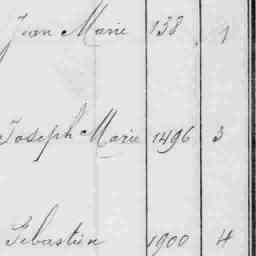 Jean Marie 138 1
Joseph Marie 1496 3
Sébastien 1900 4